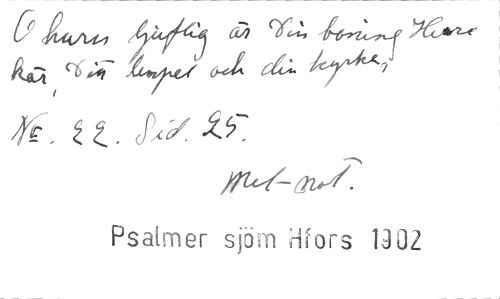 O huru ljuflig är Din boning Herre
kär, Ditt tempel och din kyrka,
No. 22. Sid. 25.
Mel-not.
Psalmer sjöm Hfors 1902